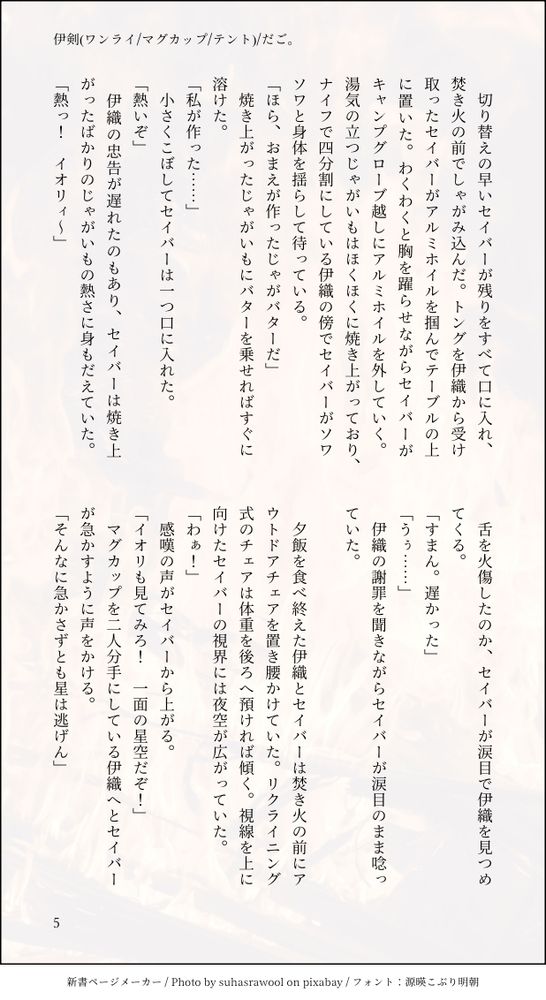 伊剣(ワンライ/マグカップ/テント)/だご。
切り替えの早いセイバーが残りをすべて口に入れ、
焚き火の前でしゃがみ込んだ。トングを伊織から受け
取ったセイバーがアルミホイルを掴んでテーブルの上
に置いた。わくわくと胸を躍らせながらセイバーが
キャンプグローブ越しにアルミホイルを外していく。
湯気の立つじゃがいもはほくほくに焼き上がっており、
ナイフで四分割にしている伊織の傍でセイバーがソワ
ソワと身体を揺らして待っている。
「ほら、おまえが作ったじゃがバターだ」
焼き上がったじゃがいもにバターを乗せればすぐに
溶けた。
「私が作った……」
小さくこぼしてセイバーは一つ口に入れた。
「熱いぞ」
伊織の忠告が遅れたのもあり、セイバーは焼き上
がったばかりのじゃがいもの熱さに身もだえていた。
「熱っ！　イオリィ〜」
舌を火傷したのか、セイバーが涙目で伊織を見つめ
てくる。
「すまん。遅かった」
「うぅ……」
伊織の謝罪を聞きながらセイバーが涙目のまま唸っ
ていた。
夕飯を食べ終えた伊織とセイバーは焚き火の前にア
ウトドアチェアを置き腰かけていた。リクライニング
式のチェアは体重を後ろへ預ければ傾く。視線を上に
向けたセイバーの視界には夜空が広がっていた。
「わぁ！」
感嘆の声がセイバーから上がる。
「イオリも見てみろ！　一面の星空だぞ！」
マグカップを二人分手にしている伊織へとセイバー
が急かすように声をかける。
「そんなに急かさずとも星は逃げん」
5
新書ページメーカー / Photo by suhasrawool on pixabay / フォント：源暎こぶり明朝